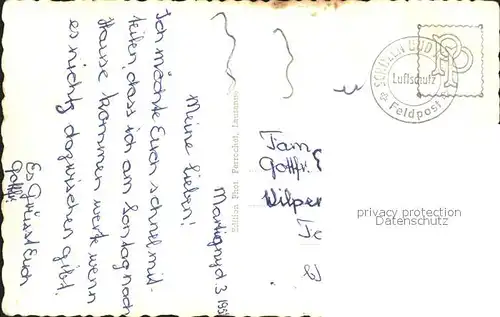 Martigny d. 3. 195
Meine lieben!
Ich möchte Euch schnel mit-
teilen, dass ich am Sontag nach
Hause kommen werte wenn
es nichts dazwischen gibt.
Es Grüsst Euch
Gottfr.
Edition Phot. Perrochet, Lausanne
SCHWEIZ
Luftschutz
Feldpost
Fam
Gottfr.
privacy protection
Datenschutz